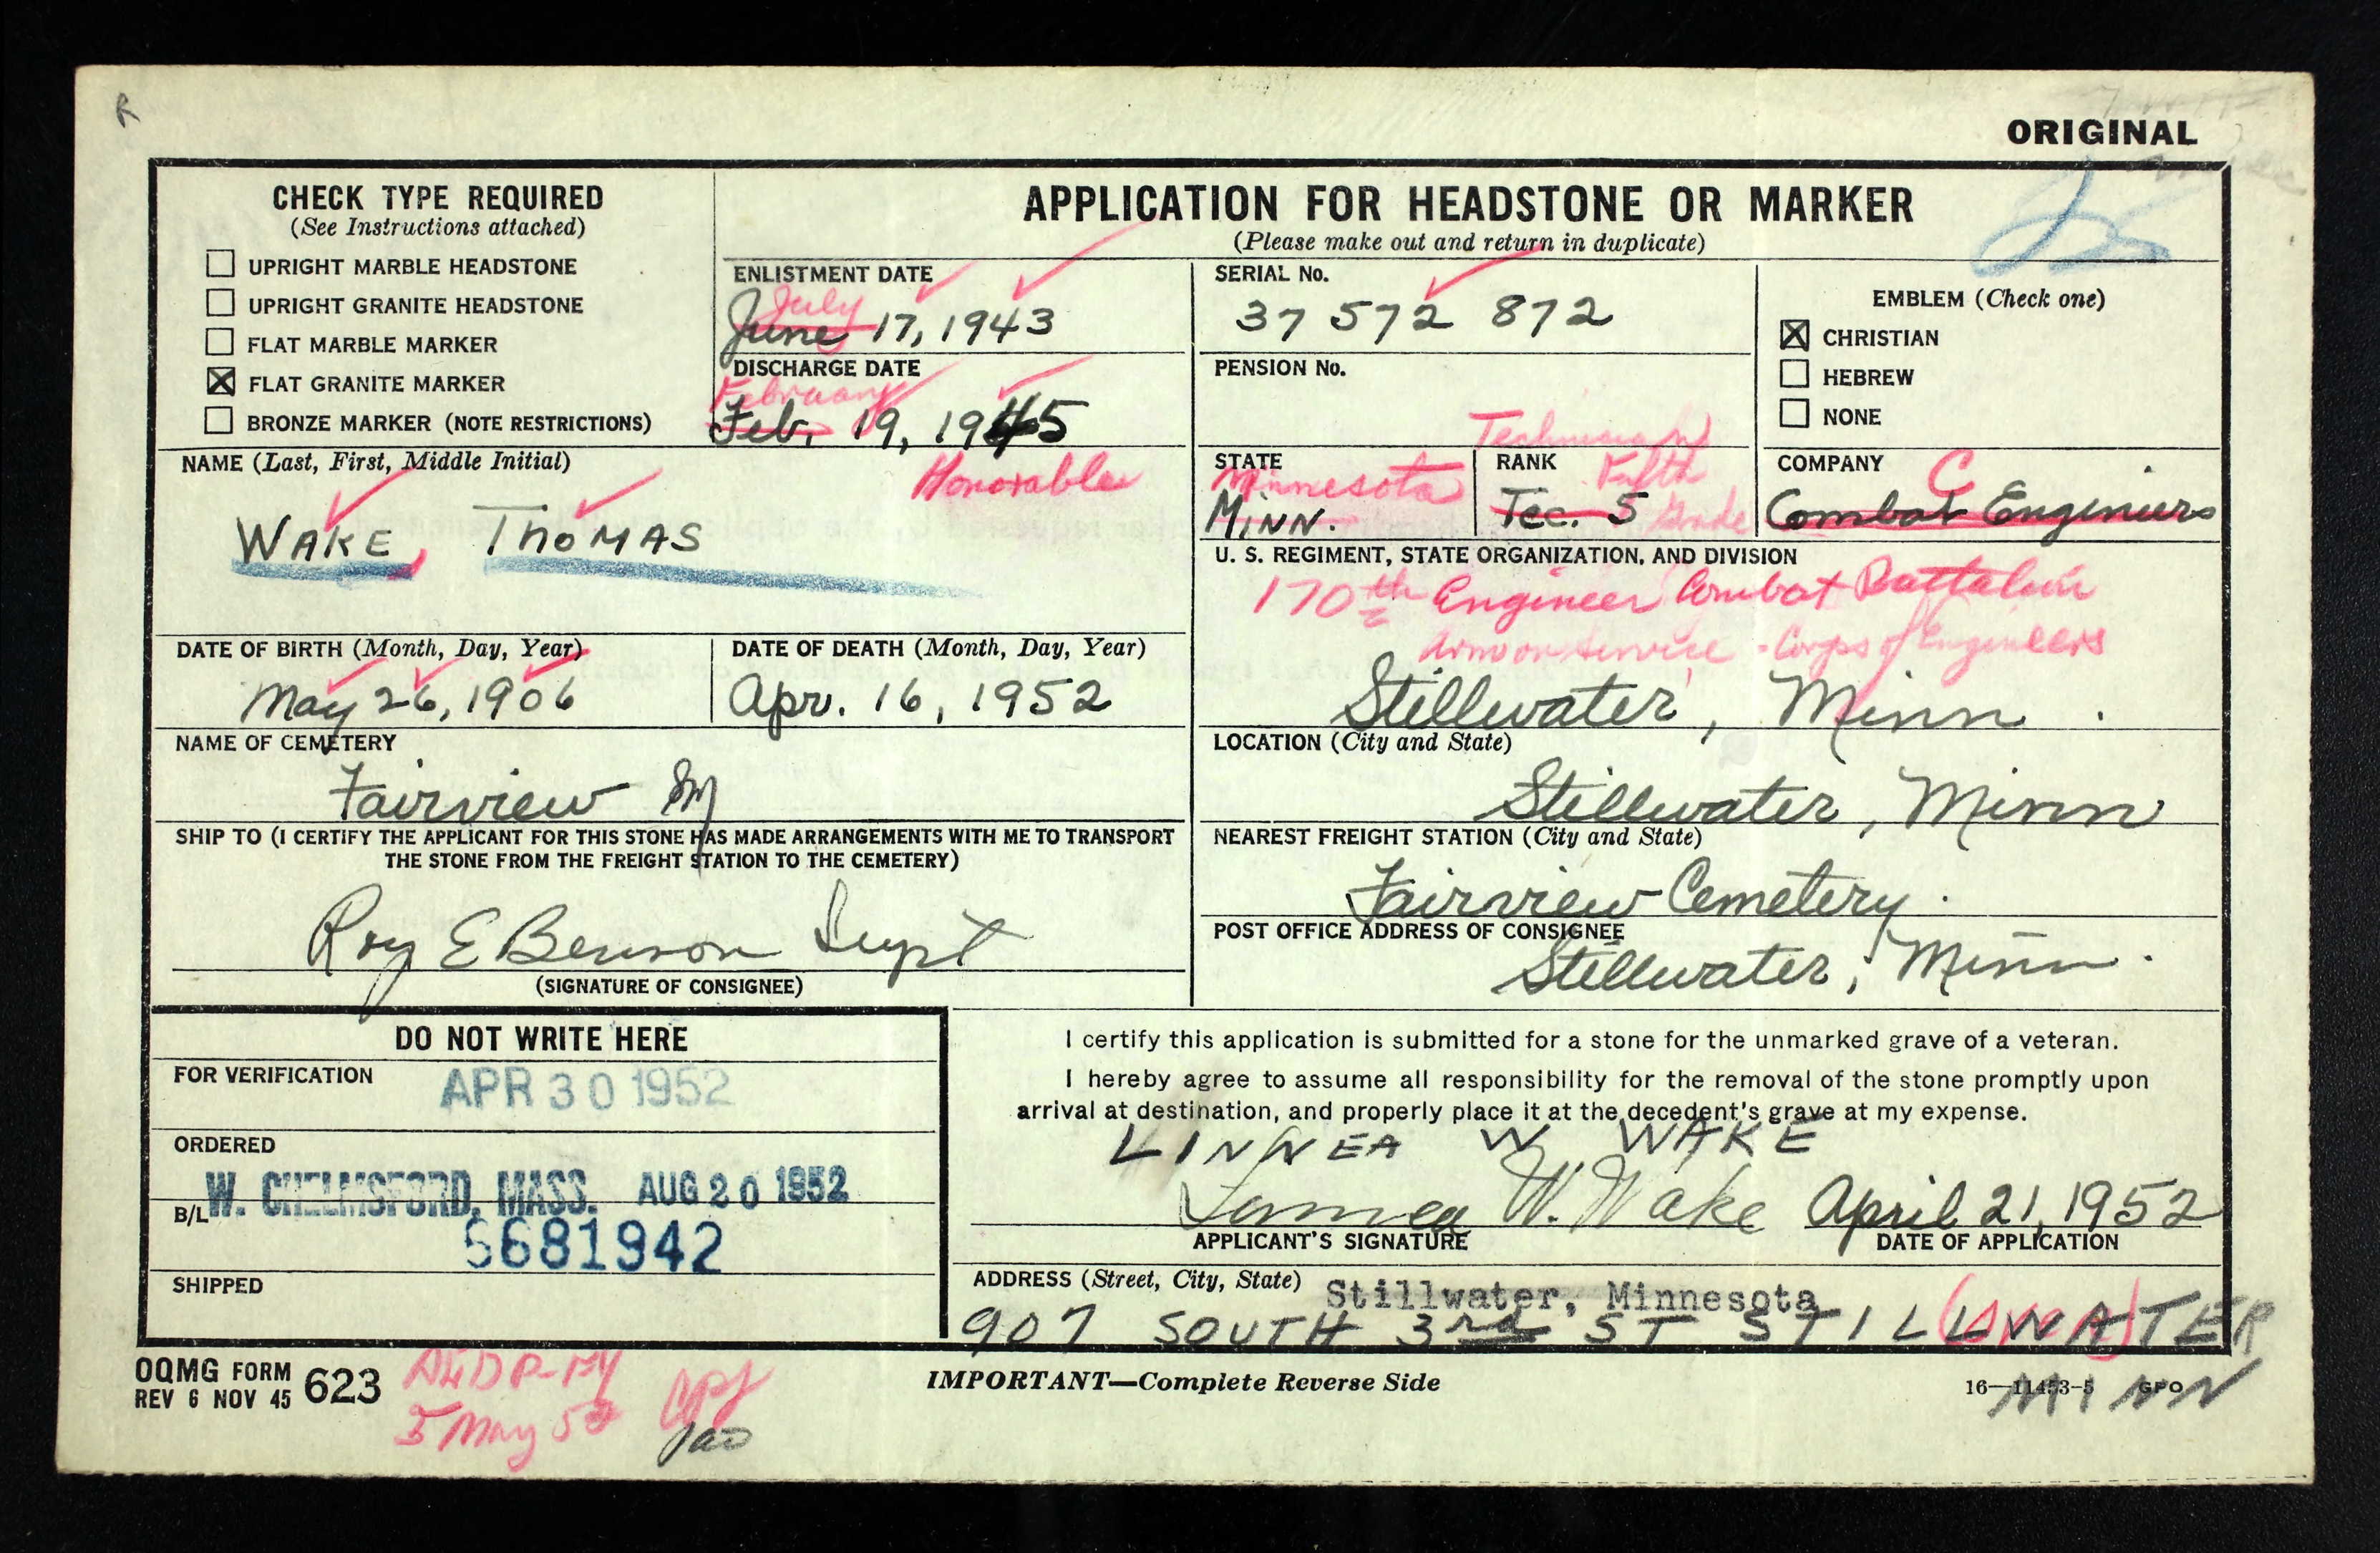 R
ORIGINAL
CHECK TYPE REQUIRED
(See Instructions attached)
UPRIGHT MARBLE HEADSTONE
UPRIGHT GRANITE HEADSTONE
FLAT MARBLE MARKER
☒ FLAT GRANITE MARKER
BRONZE MARKER (NOTE RESTRICTIONS)
APPLICATION FOR HEADSTONE OR MARKER
(Please make out and return in duplicate)
ENLISTMENT DATE
July
June 17, 1943
DISCHARGE DATE
February
Feb. 19, 1945
Honorable
SERIAL No.
37 572 872
PENSION No.
EMBLEM (Check one)
☒ CHRISTIAN
HEBREW
NONE
NAME (Last, First, Middle Initial)
WAKE, THOMAS
STATE
Minnesota
MINN.
RANK
Technician
Fifth
Tec. 5 Grade
COMPANY
C
Combat Engineers
U. S. REGIMENT, STATE ORGANIZATION, AND DIVISION
170th Engineer Combat Battalion
Arm or Service - Corps of Engineers
Stillwater, Minn.
DATE OF BIRTH (Month, Day, Year)
May 26, 1906
DATE OF DEATH (Month, Day, Year)
Apr. 16, 1952
NAME OF CEMETERY
Fairview
LOCATION (City and State)
Stillwater, Minn
SHIP TO (I CERTIFY THE APPLICANT FOR THIS STONE HAS MADE ARRANGEMENTS WITH ME TO TRANSPORT
THE STONE FROM THE FREIGHT STATION TO THE CEMETERY)
Roy E Benson Supt
(SIGNATURE OF CONSIGNEE)
NEAREST FREIGHT STATION (City and State)
Fairview Cemetery.
POST OFFICE ADDRESS OF CONSIGNEE
Stillwater, Minn.
DO NOT WRITE HERE
FOR VERIFICATION
APR 30 1952
ORDERED
W. CHELMSFORD, MASS. AUG 20 1952
B/L
5681942
SHIPPED
I certify this application is submitted for a stone for the unmarked grave of a veteran.
I hereby agree to assume all responsibility for the removal of the stone promptly upon
arrival at destination, and properly place it at the decedent's grave at my expense.
LINNEA W WAKE
Linnea W. Wake April 21, 1952
APPLICANT'S SIGNATURE
DATE OF APPLICATION
ADDRESS (Street, City, State) Stillwater, Minnesota
907 SOUTH 3rd ST STILLWATER
MINN
OQMG FORM
REV 6 NOV 45 623
5 May 52
IMPORTANT—Complete Reverse Side
16—11453-5 GPO